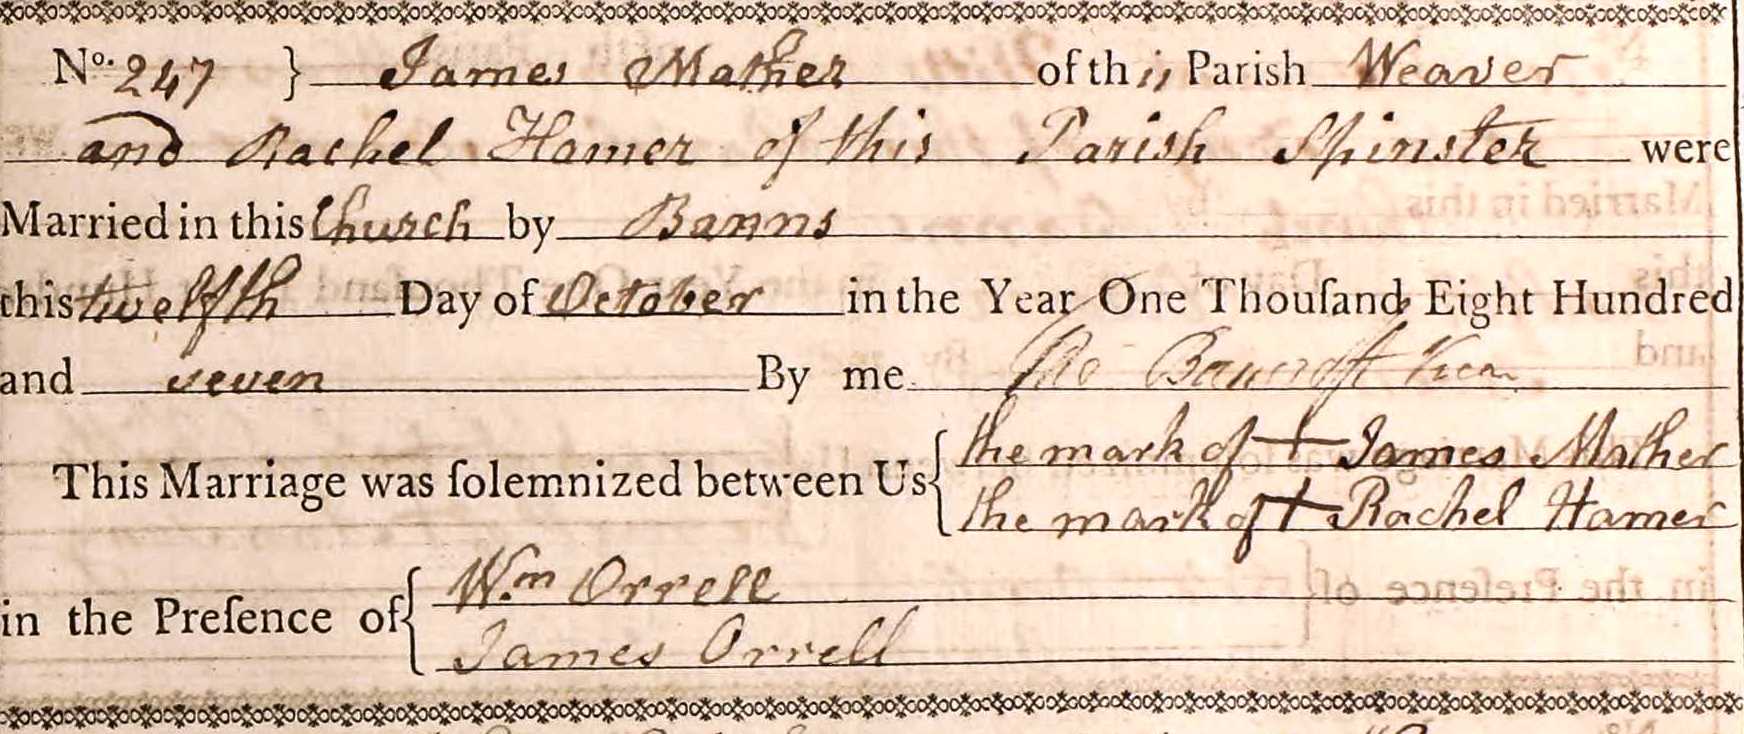 No. 247 } James Mather of this Parish Weaver
and Rachel Hamer of this Parish Spinster were
Married in this Church by Banns
this twelfth Day of October in the Year One Thouſand Eight Hundred
and seven By me Tho Bancroft Vicar
This Marriage was ſolemnized between Us { the mark of + James Mather
the mark of + Rachel Hamer
in the Preſence of { Wm Orrell
James Orrell